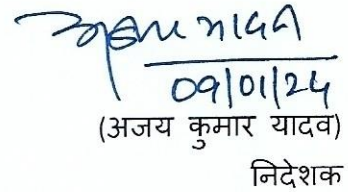 अजय यादव
09/01/24
(अजय कुमार यादव)
निदेशक